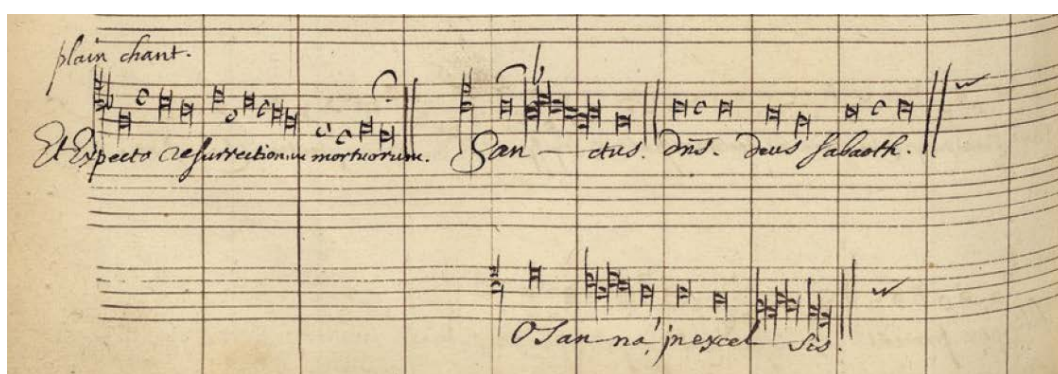 plain chant.
Et Expecto resurrectionem mortuorum. San - ctus. dns. deus sabaoth.
O San - na, jn excel - sis.